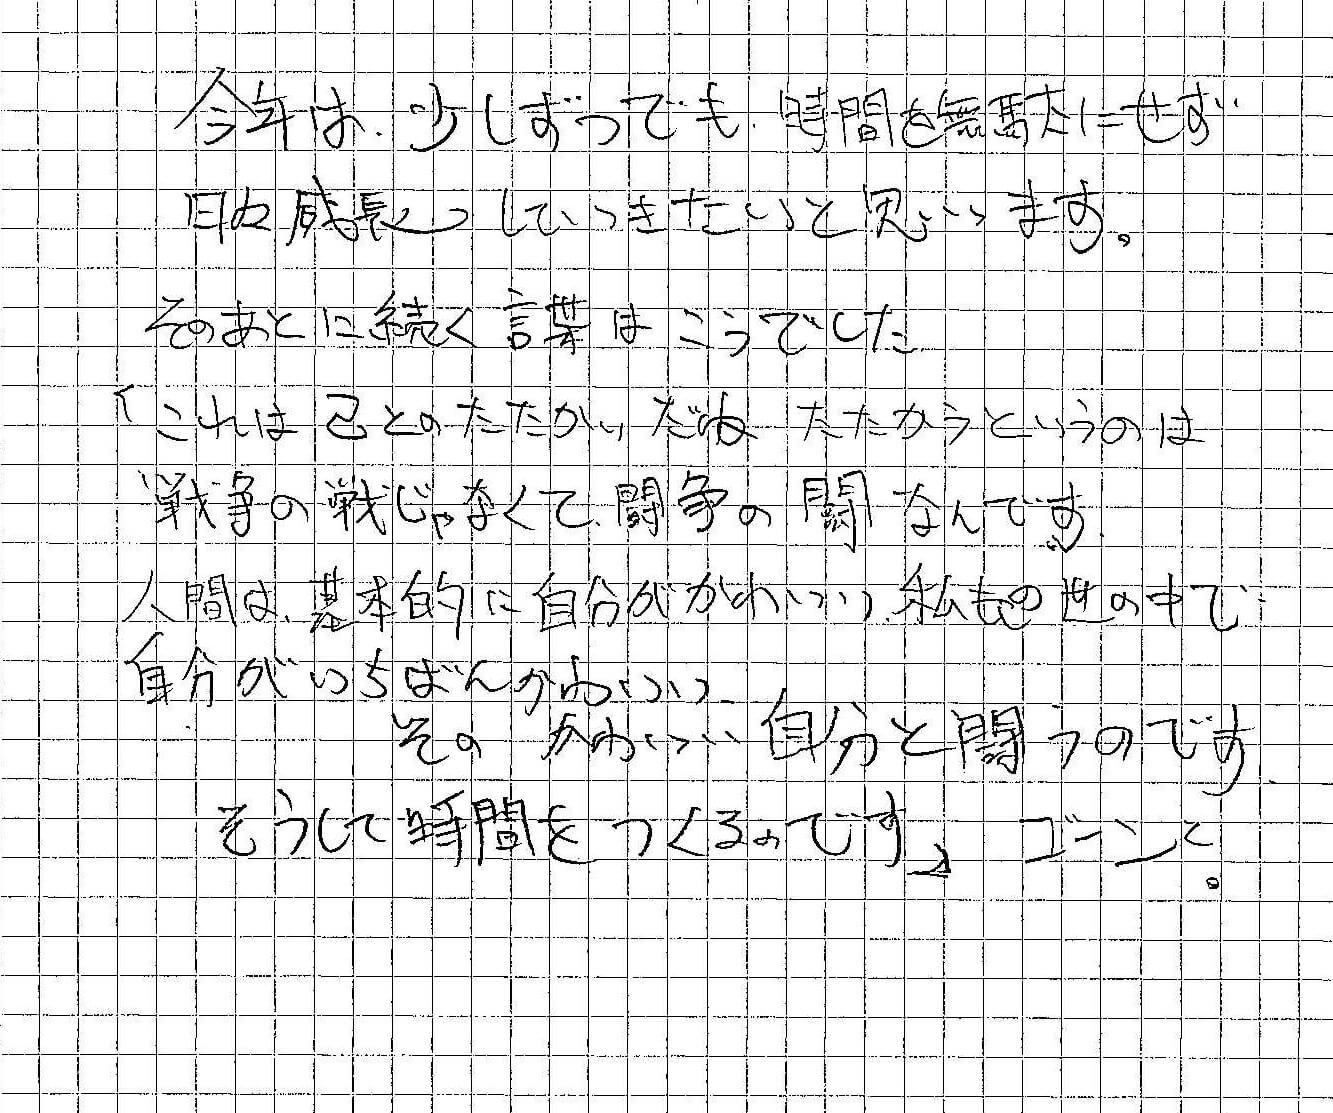 今年は、少しずつでも、時間を無駄にせず
日々成長していきたいと思います。
そのあとに続く言葉はこうでした
「これは己とのたたかいだね たたかうというのは
戦争の戦じゃなくて、闘争の闘なんです。
人間は、基本的に自分がかわいい、私もこの世の中で
自分がいちばんかわいい、
そのかわいい自分と闘うのです。
そうして時間をつくるのです」 ゴーンと。